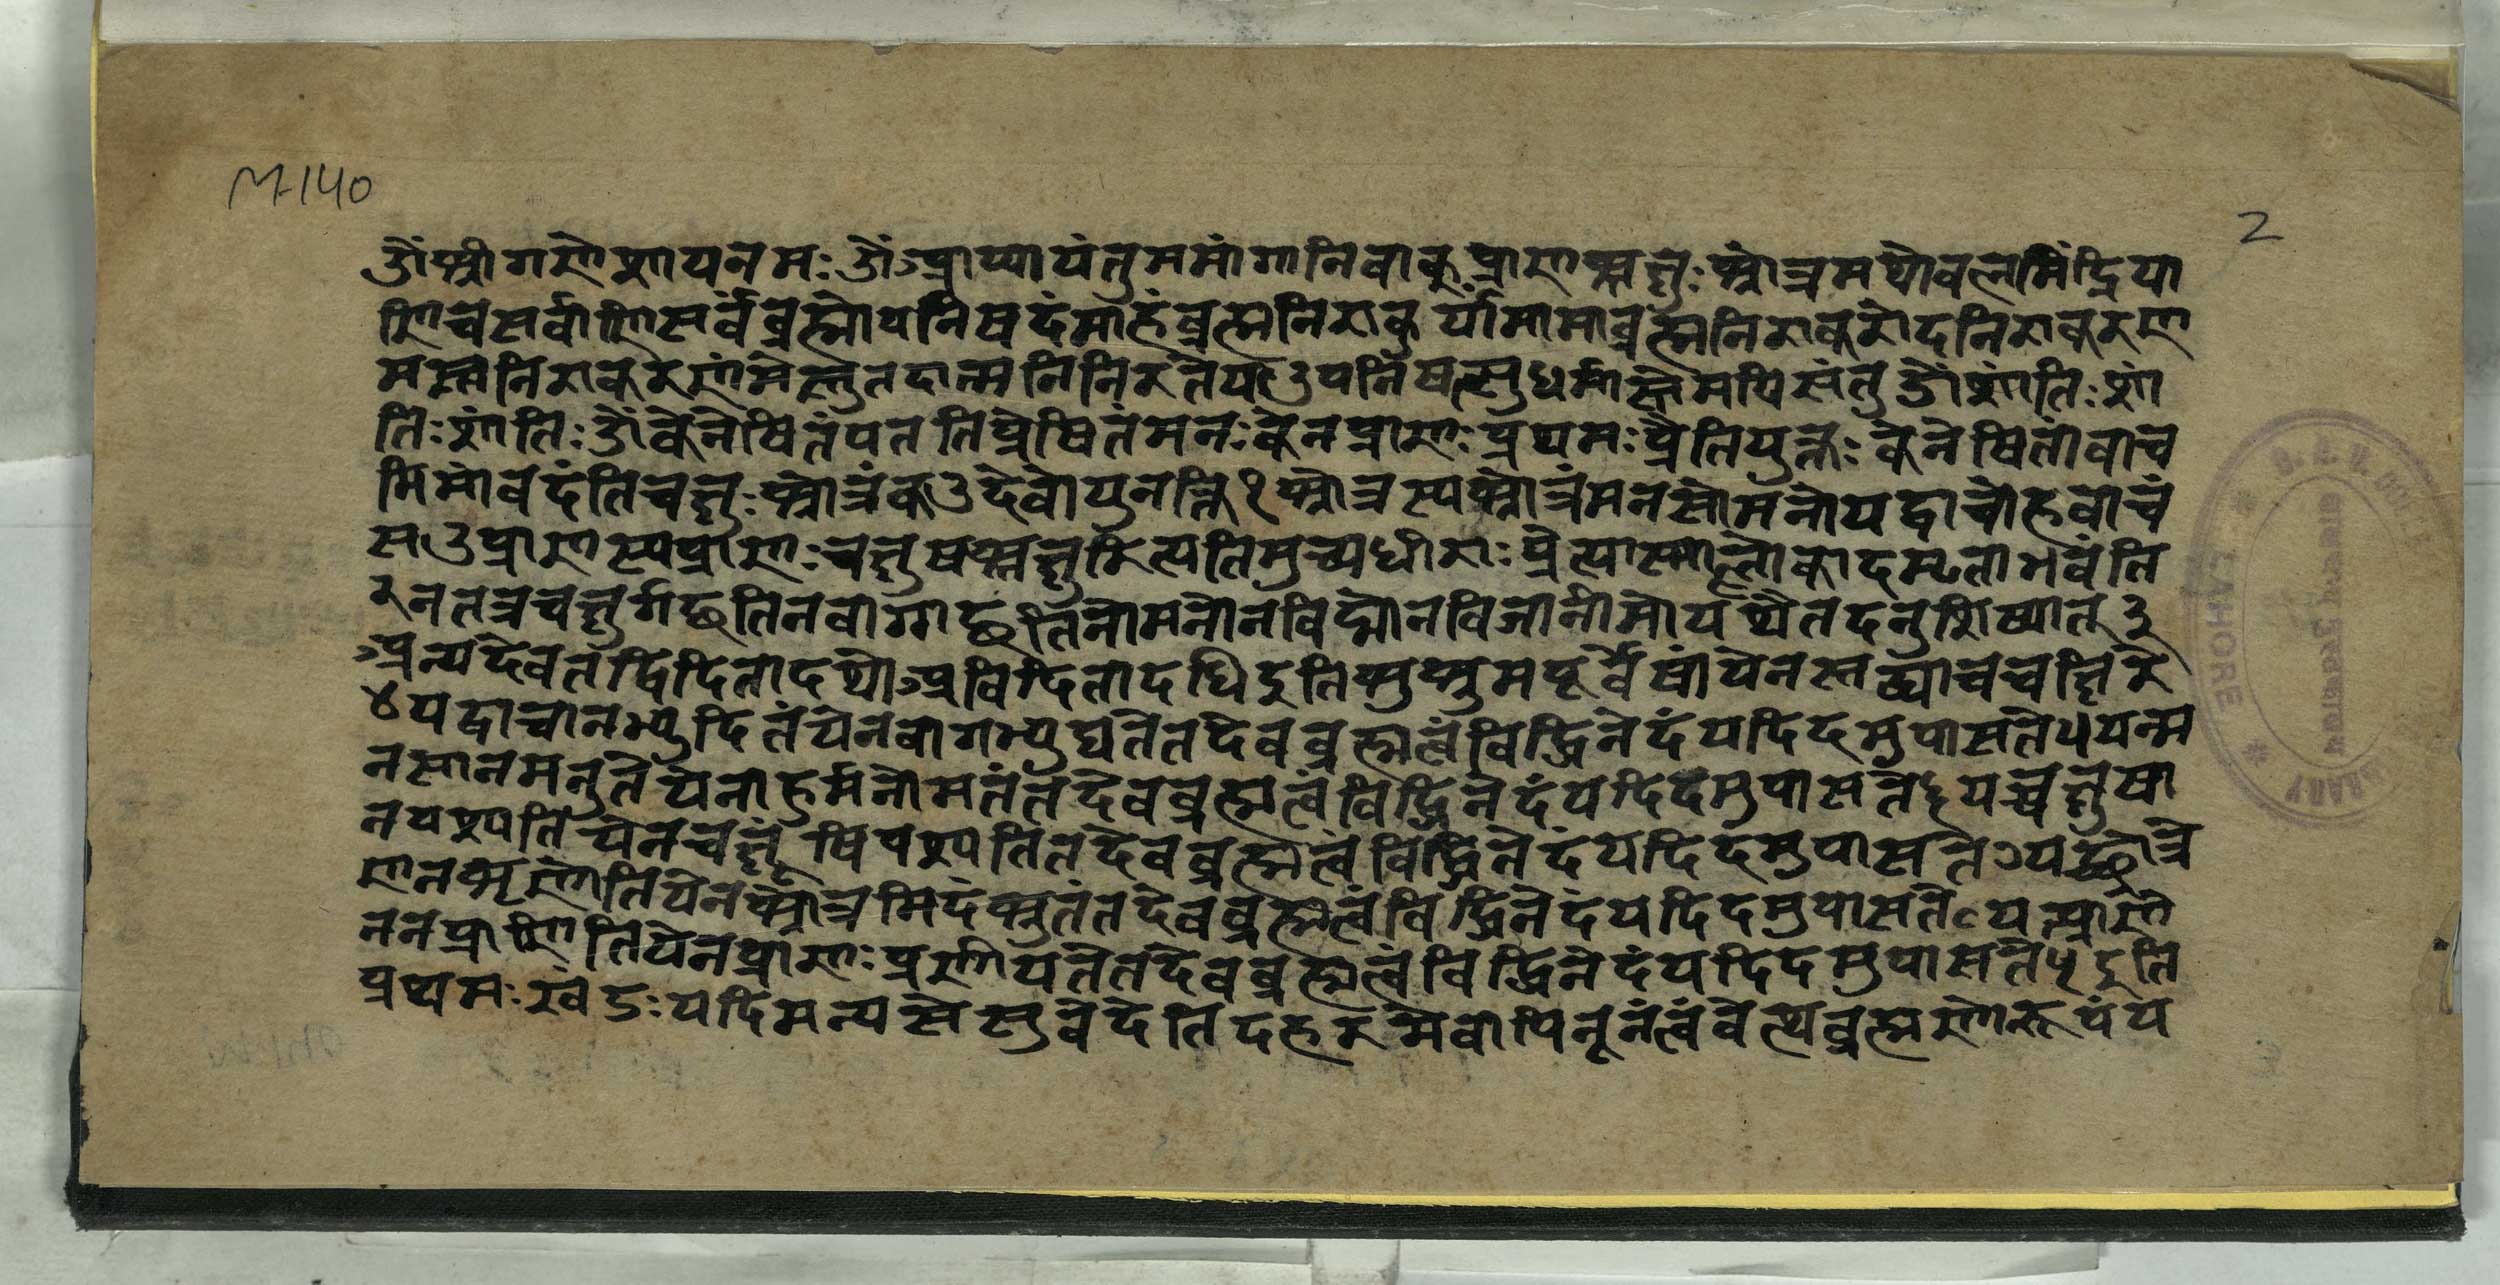 M-140
2
ॐश्रीगणेशायनमः ॐआप्यायंतुममांगानिवाक्प्राणश्चक्षुः श्रोत्रमथोबलमिंद्रिया
णिचसर्वाणिसर्वंब्रह्मोपनिषदंमाहंब्रह्मनिराकुर्यांमामाब्रह्मनिराकरोदनिराकरण
मस्त्वनिराकरणंमेस्तुतदात्मनिनिरतेयउपनिषत्सुधर्मास्तेमयिसंतु ॐशांतिः शां
तिः शांतिः ॐकेनेषितंपततिप्रेषितंमनः केनप्राणः प्रथमः प्रैतियुक्तः केनेषितांवाच
मिमांवदंतिचक्षुः श्रोत्रंकउदेवोयुनक्ति १ श्रोत्रस्यश्रोत्रंमनसोमनोयद्वाचोहवाचं
सउप्राणस्यप्राणः चक्षुषश्चक्षुरित्यतिमुच्यधीराः प्रेत्यास्माल्लोकादमृताभवंति
२ नतत्रचक्षुर्गच्छतिनवाग्गच्छतिनोमनोनविद्मोनविजानीमोयथैतदनुशिष्यात् ३
अन्यदेवतद्विदितादथोअविदितादधिइतिशुश्रुमपूर्वेषांयेनस्तद्व्याचचक्षिरे
४ यद्वाचानभ्युदितंयेनवागभ्युद्यतेतदेवब्रह्मत्वंविद्धिनेदंयदिदमुपासते ५ यन्म
नसानमनुतेयेनाहुर्मनोमतंतदेवब्रह्मत्वंविद्धिनेदंयदिदमुपासते ६ यच्चक्षुषा
नपश्यतियेनचक्षूंषिपश्यतितदेवब्रह्मत्वंविद्धिनेदंयदिदमुपासते ७ यच्छ्रोत्रे
णनशृणोतियेनश्रोत्रमिदंश्रुतंतदेवब्रह्मत्वंविद्धिनेदंयदिदमुपासते ८ यत्प्राणे
ननप्राणितियेनप्राणः प्रणीयतेतदेवब्रह्मत्वंविद्धिनेदंयदिदमुपासते ९ इति
प्रथमः खंडः यदिमन्यसेसुवेदेतिदहरमेवापिनूनंत्वंवेत्थब्रह्मणोरूपंय
LAHORE